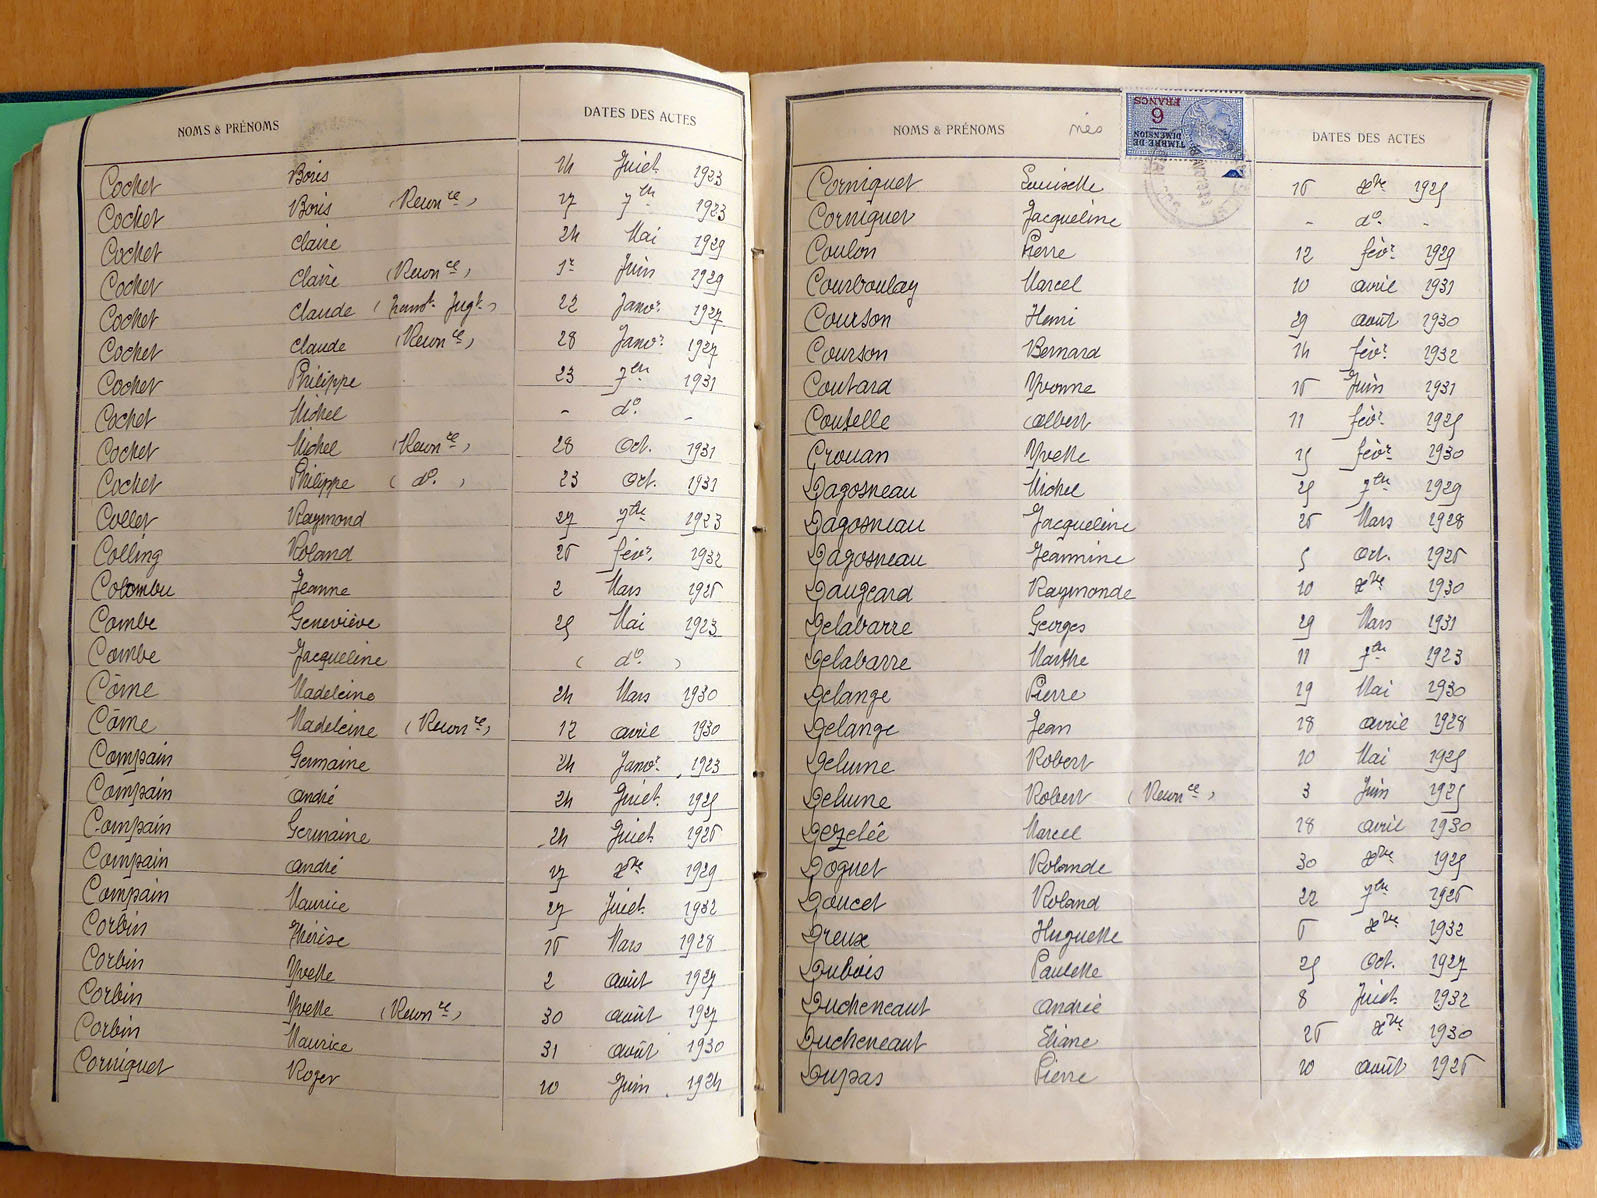 NOMS & PRÉNOMS DATES DES ACTES
Cochet Boris 24 Juiet 1923
Cochet Boris (Reconce) 27 7bre 1923
Cochet Claire 24 Mai 1929
Cochet Claire (Reconce) 1er Juin 1929
Cochet Claude 22 Janvr 1927
Cochet Claude (Reconce) 28 Janvr 1927
Cochet Philippe 23 7bre 1931
Cochet Michel - do -
Cochet Michel (Reconce) 28 Oct. 1931
Cochet Philippe (do) 23 Oct. 1931
Collet Raymond 27 7bre 1923
Colling Roland 26 févr 1932
Colombu Jeanne 2 Mars 1926
Combe Geneviève 25 Mai 1923
Combe Jacqueline (do)
Côme Madeleine 24 Mars 1930
Côme Madeleine (Reconce) 12 avril 1930
Compain Germaine 24 Janvr 1923
Compain André 24 Juiet 1925
Compain Germaine 24 Juiet 1926
Compain André 17 xbre 1929
Compain Maurice 27 Juiet 1932
Corbin Thérèse 16 Mars 1928
Corbin Yvette 2 août 1927
Corbin Yvette (Reconce) 30 août 1927
Corbin Maurice 31 août 1930
Corniquet Roger 10 Juin 1924
NOMS & PRÉNOMS nés DATES DES ACTES
TIMBRE DE
DIMENSION
6
FRANCS
Corniquet Louisette 16 xbre 1925
Corniquet Jacqueline - do -
Coulon Pierre 12 févr 1929
Courboulay Marcel 10 avril 1931
Courson Henri 29 août 1930
Courson Bernard 14 févr 1932
Coutard Yvonne 16 Juin 1931
Coutelle Albert 11 févr 1925
Crouan Yvette 15 févr 1930
Dagosneau Michel 25 7bre 1929
Dagosneau Jacqueline 26 Mars 1928
Dagosneau Jeannine 5 Oct. 1926
Daugeard Raymonde 10 xbre 1930
Delabarre Georges 29 Mars 1931
Delabarre Marthe 11 7bre 1923
Delange Pierre 19 Mai 1930
Delange Jean 18 avril 1928
Delume Robert 10 Mai 1925
Delume Robert (Reconce) 3 Juin 1925
Dezelée Marcel 18 avril 1930
Doguet Rolande 30 xbre 1925
Doucet Roland 22 7bre 1926
Dreux Huguette 6 xbre 1932
Dubois Paulette 25 Oct. 1927
Ducheneaut Andrée 8 Juiet 1932
Ducheneaut Eliane 26 xbre 1930
Dupas Pierre 10 août 1926